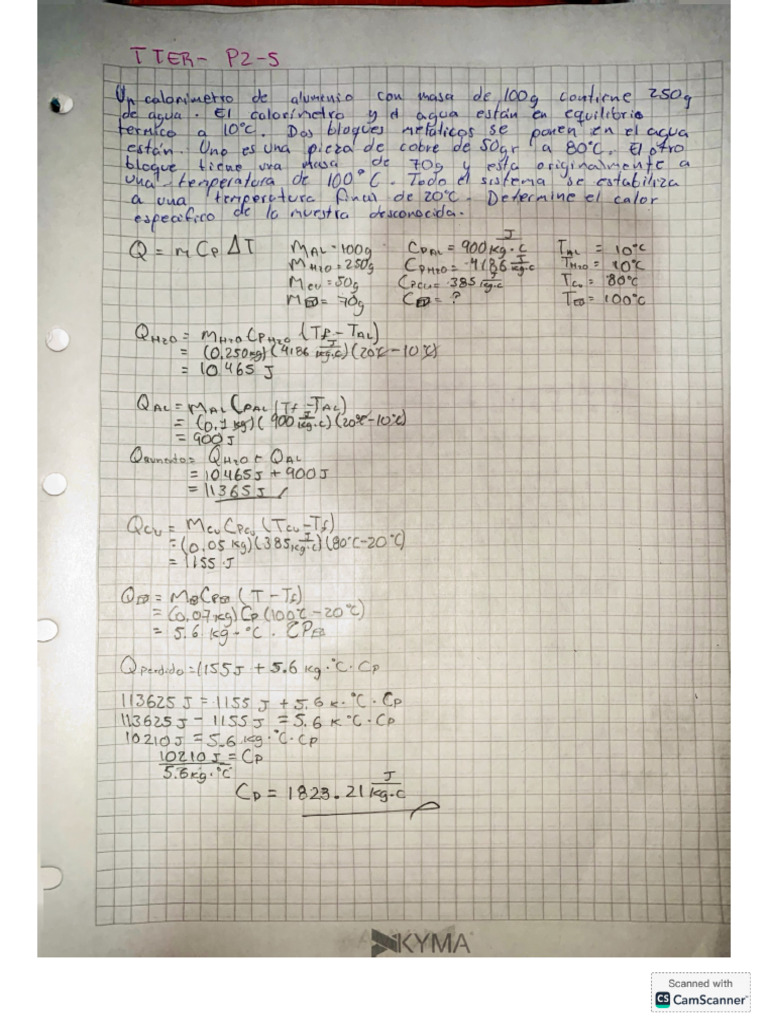 TTER- P2-5
Un calorímetro de alumenio con masa de 100g contiene 250g
de agua. El calorímetro y el agua están en equilibrio
termico a 10°C. Dos bloques metálicos se ponen en el agua
están. Uno es una pieza de cobre de 50gr a 80°C. El otro
bloque tiene una masa de 70g y está originalmente a
una temperatura de 100°C. Todo el sistema se estabiliza
a una temperatura final de 20°C. Determine el calor
especifico de la muestra desconocida.
Q = m Cp ΔT MAL = 100g CPAL = 900 J/kg·c TAL = 10°C
MH2O = 250g CPH2O = 4186 J/kg·c TH2O = 10°C
Mcu = 50g CPCu = 385 J/kg·c TCu = 80°C
M = 70g C = ? T = 100°C
QH2O = MH2O CPH2O (Tf - TAL)
= (0.250kg)(4186 J/kg·c)(20°C - 10°C)
= 10465 J
QAL = MAL CPAL (Tf - TAL)
= (0.1 kg)(900 J/kg·c)(20°C - 10°C)
= 900 J
QH2O + QAL
= 10465 J + 900 J
= 11365 J
QCu = MCu CPCu (TCu - Tf)
= (0.05 kg)(385 J/kg·c)(80°C - 20°C)
= 1155 J
Q = M CP (T - Tf)
= (0.07 kg) Cp (100°C - 20°C)
= 5.6 kg · °C · CP
Qperdido = 1155 J + 5.6 kg · °C · Cp
113625 J = 1155 J + 5.6 k · °C · Cp
113625 J - 1155 J = 5.6 K °C · Cp
10210 J = 5.6 kg · °C · Cp
10210 J / 5.6 kg · °C = Cp
Cp = 1823.21 J/kg·c
KYMA
Scanned with
CS CamScanner